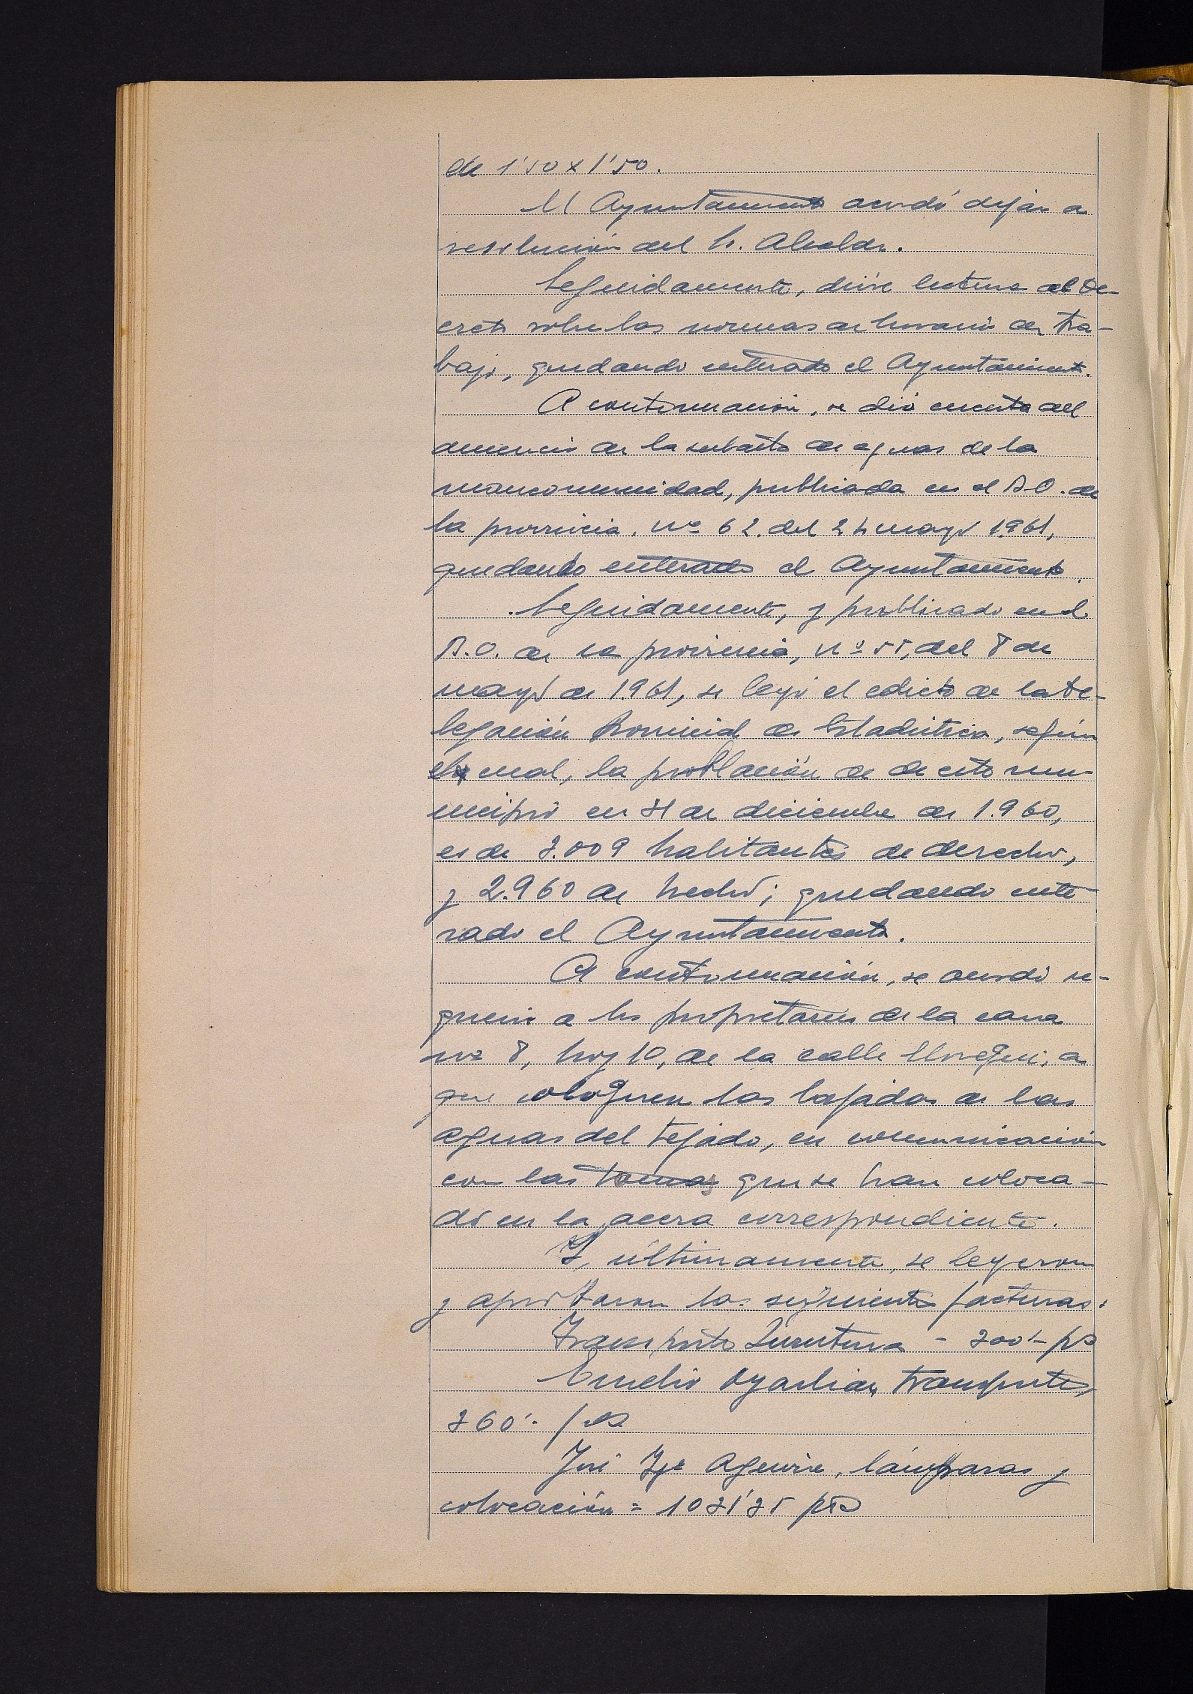 de 1'50 x 1'50.
El Ayuntamiento acordó dejar a
resolución del Sr. Alcalde.
Seguidamente, dióse lectura al De-
creto sobre las normas de horario de tra-
bajo, quedando enterado el Ayuntamiento.
A continuación, se dió cuenta del
anuncio de la subasta de aguas de la
mancomunidad, publicada en el B.O. de
la provincia, nº 62. del 24 mayo 1.961,
quedando enterado el Ayuntamiento.
Seguidamente, y publicado en el
B.O. de la provincia, nº 55, del 8 de
mayo de 1.961, se leyó el edicto de la De-
legación Provincial de Estadística, según
el cual, la población de de este mu-
nicipio en 31 de diciembre de 1.960,
es de 3.009 habitantes de derecho,
y 2.960 de hecho; quedando ente
rado el Ayuntamiento.
A continuación, se acordó re-
querir a los propietarios de la casa
nº 8, hoy 10, de la calle a
que coloquen las bajadas de las
aguas del tejado, en comunicación
con las tomas que se han coloca-
do en la acera correspondiente.
Y, últimamente, se leyeron
y aprobaron las siguientes facturas:
Transporte - 300'- pts
Emilio Oyarbian, transportes,
360'- pts
José Igº Aguirre, lámparas y
colocación = 1031'35 pts